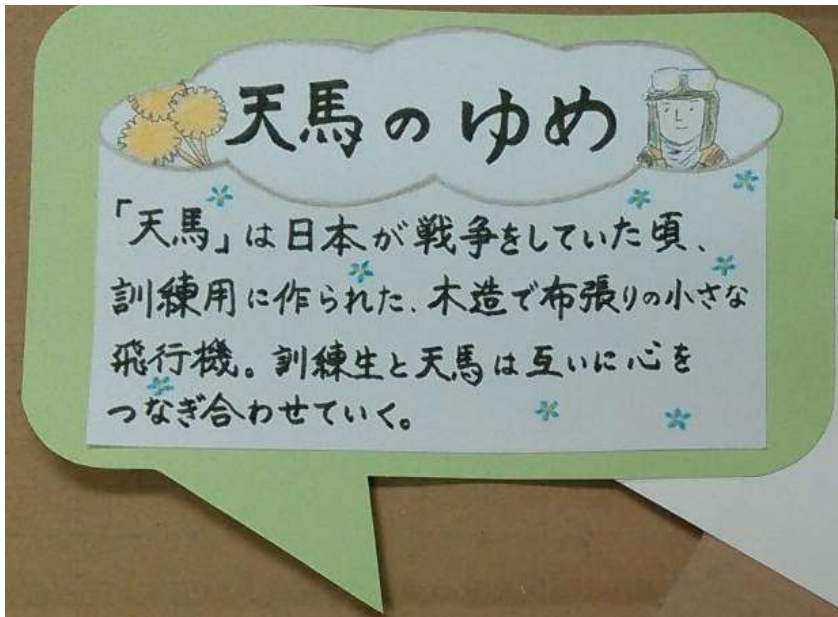 天馬のゆめ
「天馬」は日本が戦争をしていた頃、
訓練用に作られた、木造で布張りの小さな
飛行機。訓練生と天馬は互いに心を
つなぎ合わせていく。